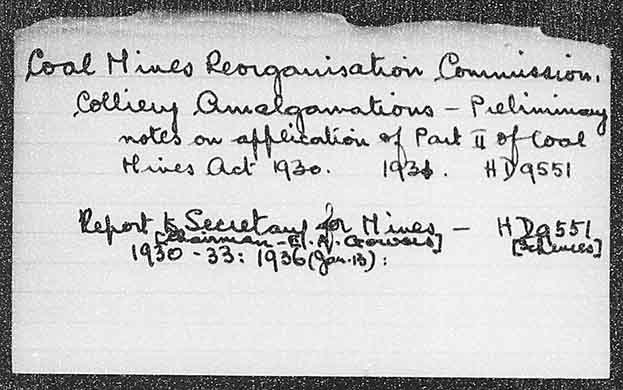 Coal Mines Reorganisation Commission.
Colliery Amalgamations – Preliminary
notes on application of Part II of Coal
Mines Act 1930. 1931. HD9551
Report to Secretary for Mines – HD9551
[Chairman – E. A. Gowers] [Schemes]
1930 - 33: 1936 (Jan. 13):